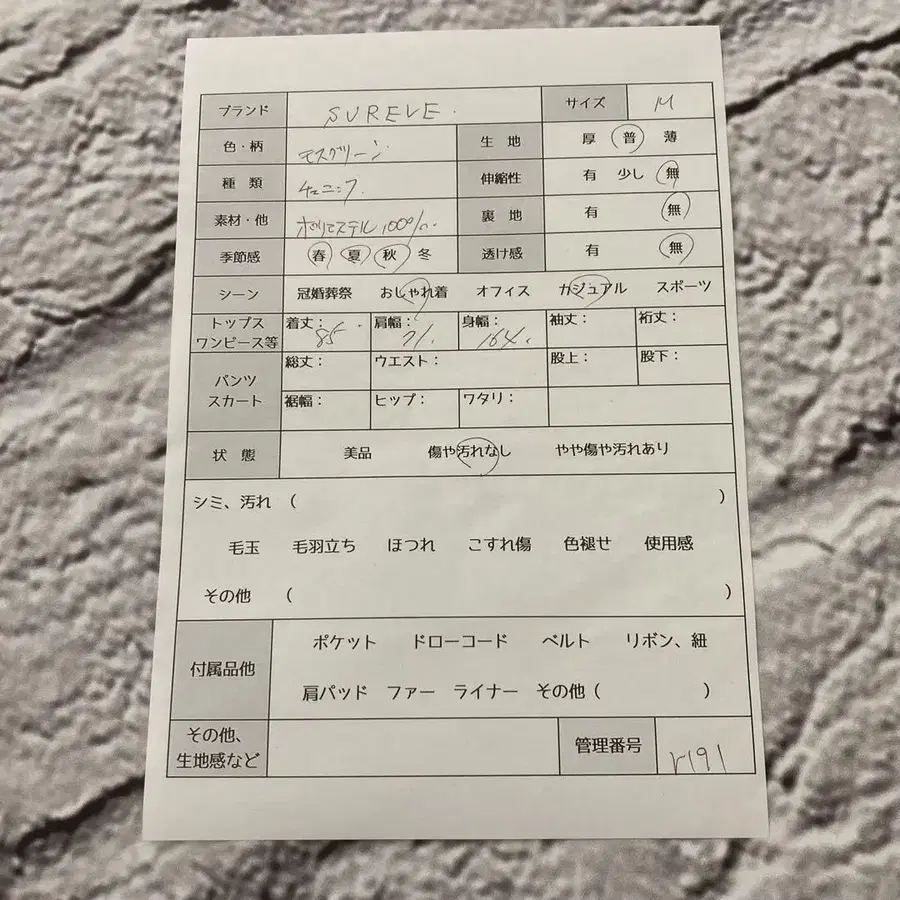 ブランド SUREVE. サイズ M
色・柄 モスグリーン 生地 厚 普 薄
種類 チュニック. 伸縮性 有 少し 無
素材・他 ポリエステル100%. 裏地 有 無
季節感 春 夏 秋 冬 透け感 有 無
シーン 冠婚葬祭 おしゃれ着 オフィス カジュアル スポーツ
トップス
ワンピース等 着丈: 85. 肩幅: 71. 身幅: 164. 袖丈: 裄丈:
パンツ
スカート 総丈: ウエスト: 股上: 股下:
裾幅: ヒップ: ワタリ:
状態 美品 傷や汚れなし やや傷や汚れあり
シミ、汚れ ( )
毛玉 毛羽立ち ほつれ こすれ傷 色褪せ 使用感
その他 ( )
付属品他 ポケット ドローコード ベルト リボン、紐
肩パッド ファー ライナー その他 ( )
その他、
生地感など 管理番号 r191